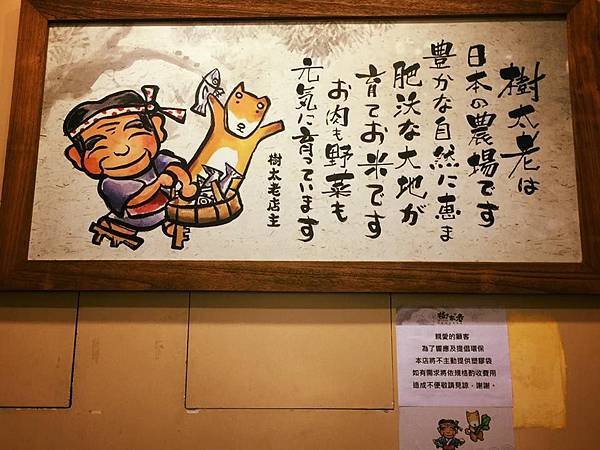 樹太老は
日本の農場です
豊かな自然に恵ま
肥沃な大地が
育てお米です
お肉も野菜も
元気に育っています
樹太老店主
樹太老
親愛的顧客
為了響應及提倡環保
本店將不主動提供塑膠袋
如有需求將依規格酌收費用
造成不便敬請見諒，謝謝。